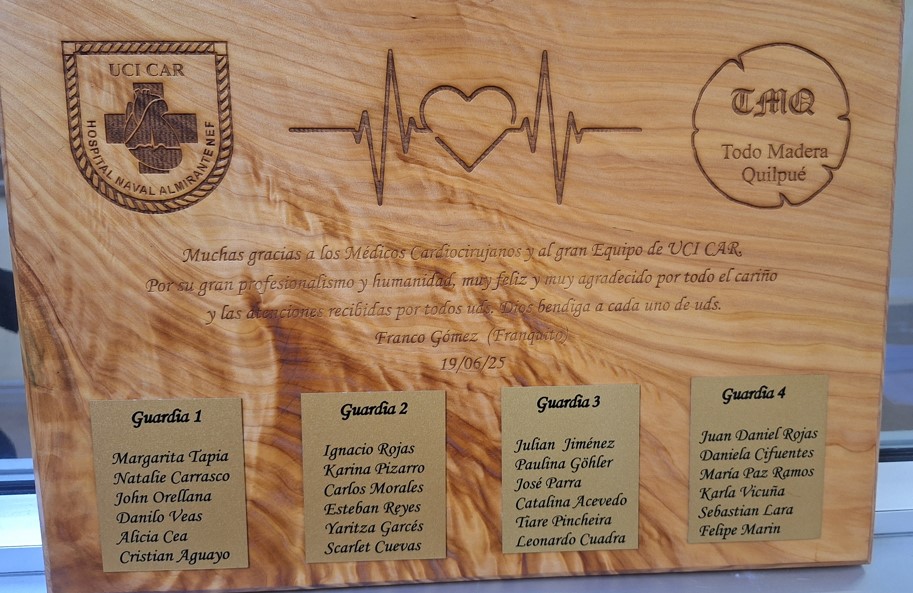 UCI CAR
HOSPITAL NAVAL ALMIRANTE NEF
TMQ
Todo Madera
Quilpué
Muchas gracias a los Médicos Cardiocirujanos y al gran Equipo de UCI CAR.
Por su gran profesionalismo y humanidad, muy feliz y muy agradecido por todo el cariño
y las atenciones recibidas por todos uds. Dios bendiga a cada uno de uds.
Franco Gómez (Franquito)
19/06/25
Guardia 1
Margarita Tapia
Natalie Carrasco
John Orellana
Danilo Veas
Alicia Cea
Cristian Aguayo
Guardia 2
Ignacio Rojas
Karina Pizarro
Carlos Morales
Esteban Reyes
Yaritza Garcés
Scarlet Cuevas
Guardia 3
Julian Jiménez
Paulina Göhler
José Parra
Catalina Acevedo
Tiare Pincheira
Leonardo Cuadra
Guardia 4
Juan Daniel Rojas
Daniela Cifuentes
María Paz Ramos
Karla Vicuña
Sebastian Lara
Felipe Marin